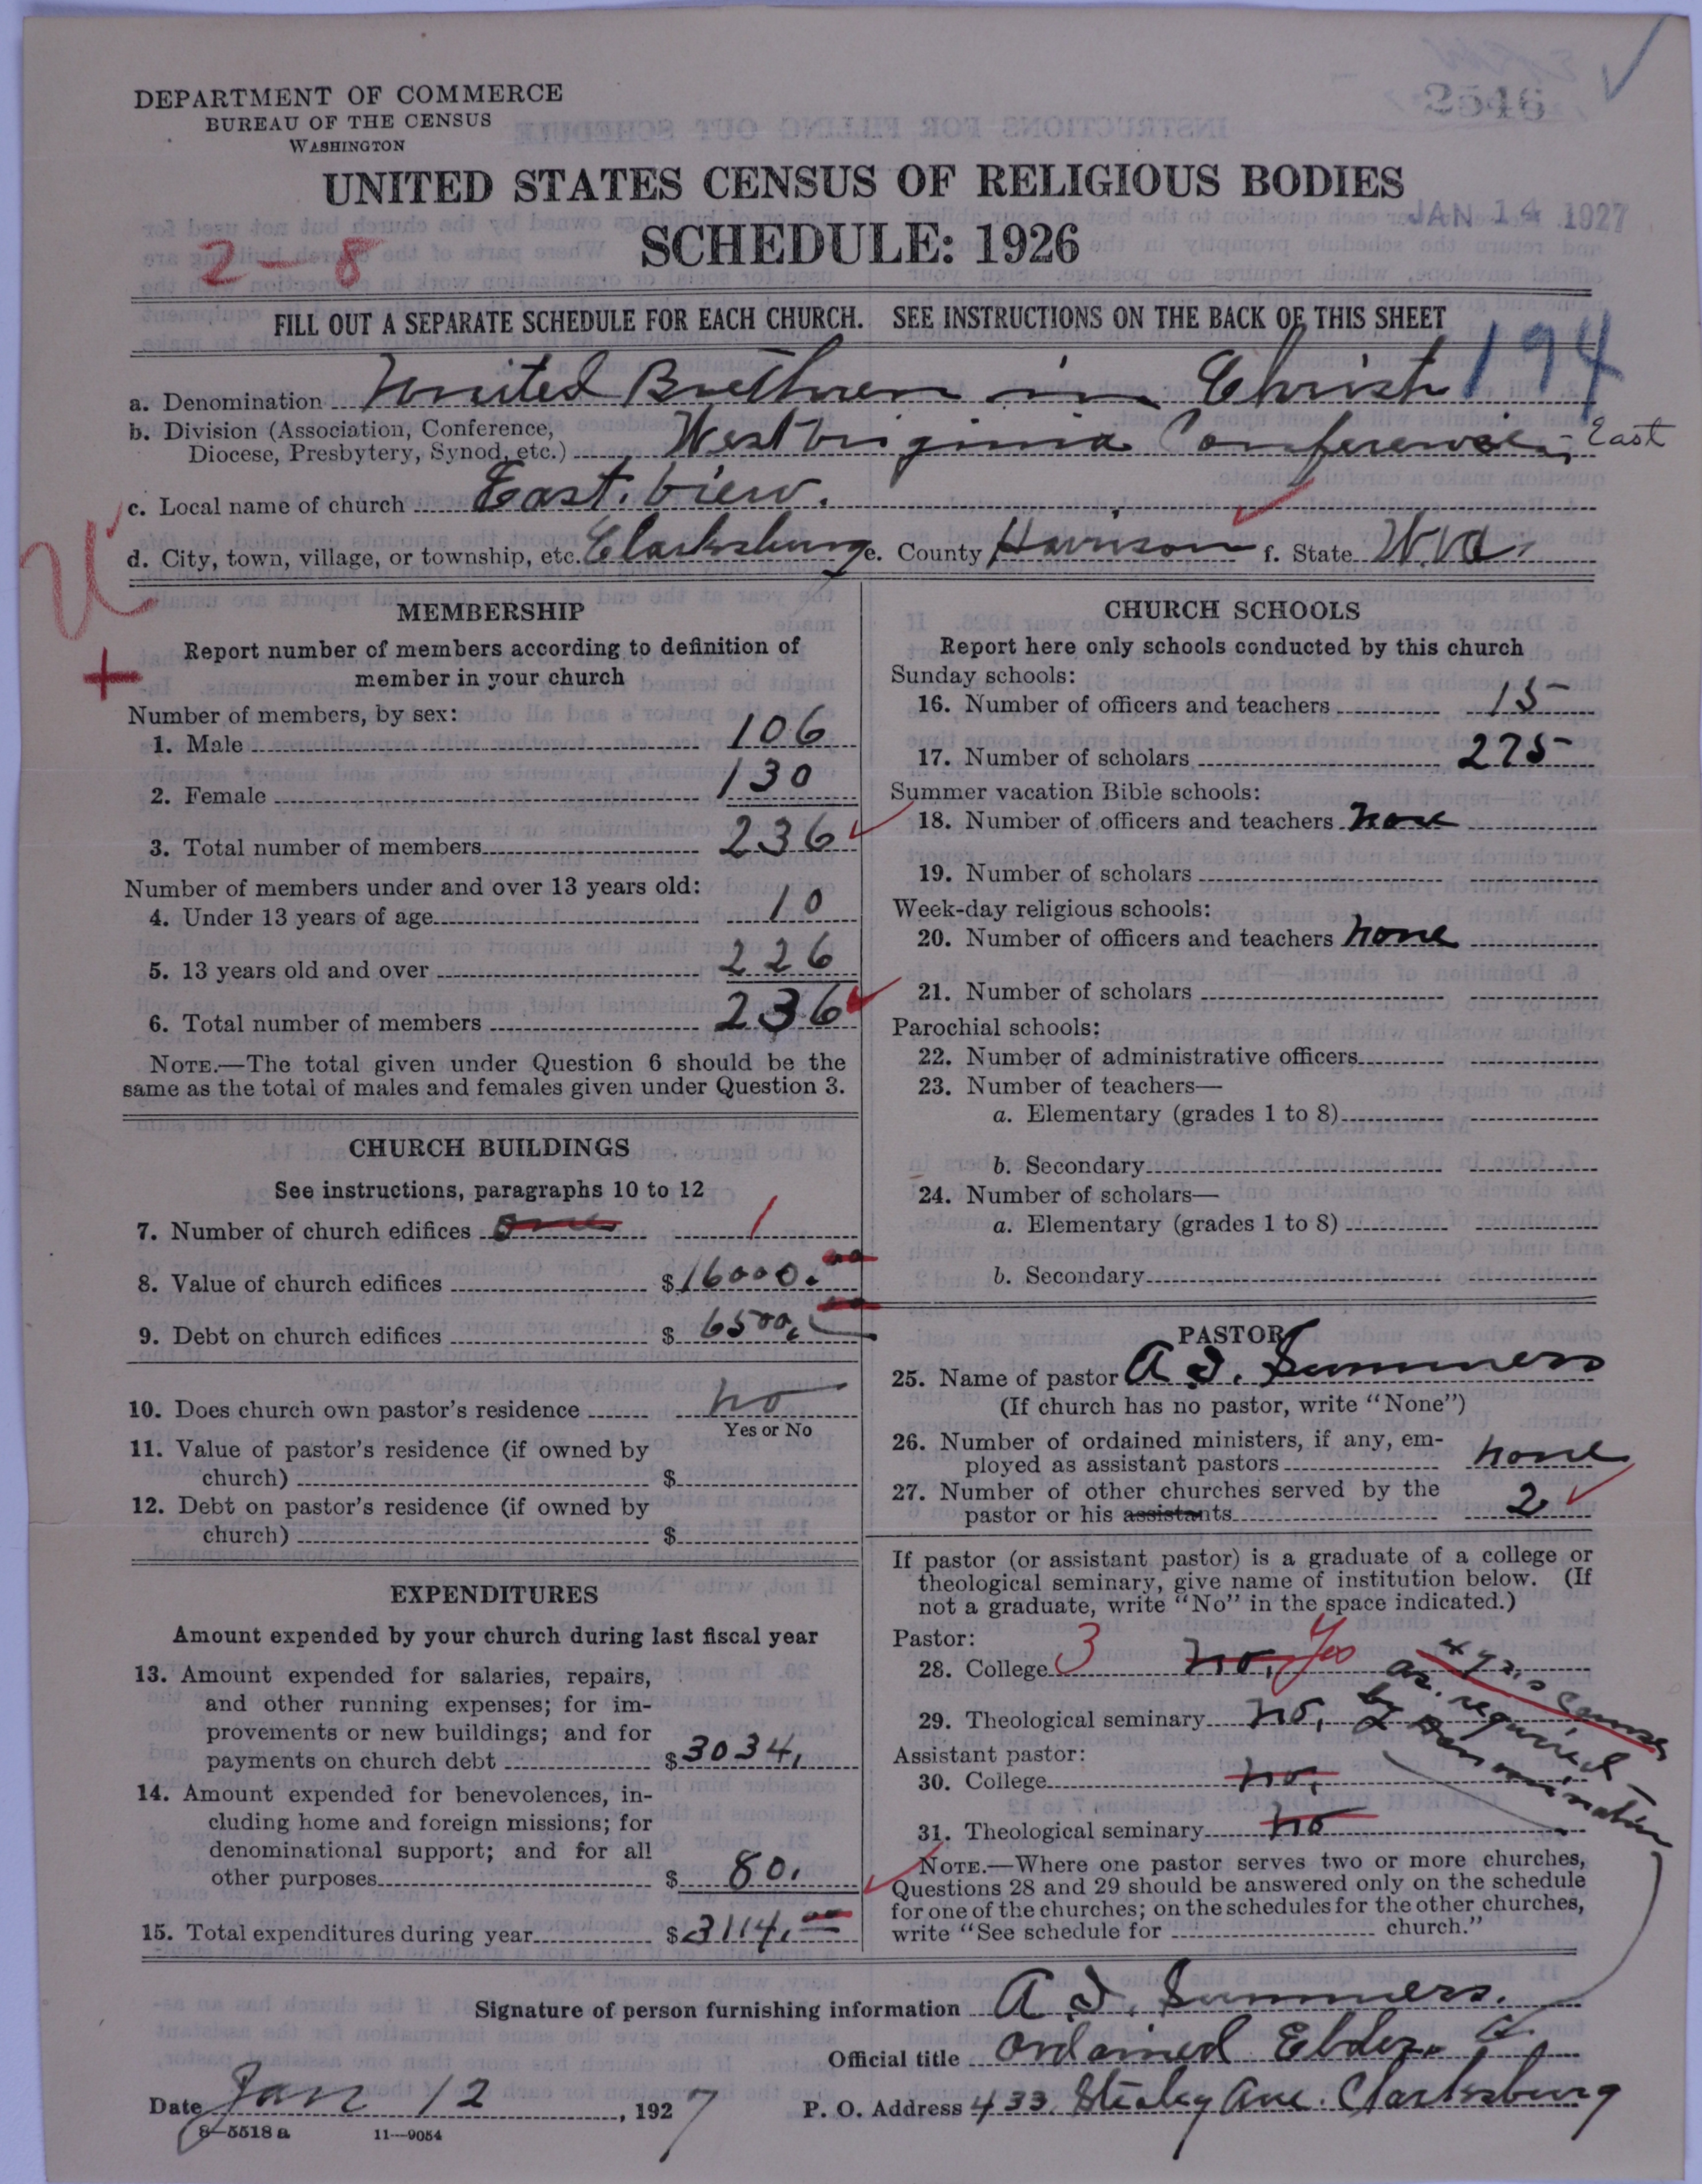 DEPARTMENT OF COMMERCE
BUREAU OF THE CENSUS
WASHINGTON
2546
UNITED STATES CENSUS OF RELIGIOUS BODIES
JAN 14 1927
SCHEDULE: 1926
2-8
FILL OUT A SEPARATE SCHEDULE FOR EACH CHURCH. SEE INSTRUCTIONS ON THE BACK OF THIS SHEET
194
a. Denomination United Brethren in Christ
b. Division (Association, Conference, Diocese, Presbytery, Synod, etc.) West Virginia Conference, - East
c. Local name of church East. View.
d. City, town, village, or township, etc. Clarksburg e. County Harrison f. State W.Va.
MEMBERSHIP
Report number of members according to definition of
member in your church
Number of members, by sex:
1. Male 106
2. Female 130
3. Total number of members 236
Number of members under and over 13 years old:
4. Under 13 years of age 10
5. 13 years old and over 226
6. Total number of members 236
NOTE.—The total given under Question 6 should be the
same as the total of males and females given under Question 3.
CHURCH BUILDINGS
See instructions, paragraphs 10 to 12
7. Number of church edifices One 1
8. Value of church edifices $16000.00
9. Debt on church edifices $6500.
10. Does church own pastor's residence no
Yes or No
11. Value of pastor's residence (if owned by
church) $
12. Debt on pastor's residence (if owned by
church) $
EXPENDITURES
Amount expended by your church during last fiscal year
13. Amount expended for salaries, repairs,
and other running expenses; for im-
provements or new buildings; and for
payments on church debt $3034.
14. Amount expended for benevolences, in-
cluding home and foreign missions; for
denominational support; and for all
other purposes $80.
15. Total expenditures during year $3114.
CHURCH SCHOOLS
Report here only schools conducted by this church
Sunday schools:
16. Number of officers and teachers 15
17. Number of scholars 275
Summer vacation Bible schools:
18. Number of officers and teachers none
19. Number of scholars
Week-day religious schools:
20. Number of officers and teachers none
21. Number of scholars
Parochial schools:
22. Number of administrative officers
23. Number of teachers—
a. Elementary (grades 1 to 8)
b. Secondary
24. Number of scholars—
a. Elementary (grades 1 to 8)
b. Secondary
PASTOR
25. Name of pastor A. D. Summers
(If church has no pastor, write "None")
26. Number of ordained ministers, if any, em-
ployed as assistant pastors none
27. Number of other churches served by the
pastor or his assistants 2
If pastor (or assistant pastor) is a graduate of a college or
theological seminary, give name of institution below. (If
not a graduate, write "No" in the space indicated.)
Pastor:
28. College 3 no, Yes
4 yr's course
as. required
by Denomination
29. Theological seminary no,
Assistant pastor:
30. College no,
31. Theological seminary no
NOTE.—Where one pastor serves two or more churches,
Questions 28 and 29 should be answered only on the schedule
for one of the churches; on the schedules for the other churches,
write "See schedule for church."
Signature of person furnishing information A. D. Summers.
Official title Ordained Elder
Date Jan 12, 1927 P. O. Address 433 Stealey Ave. Clarksburg
8—5518 a 11—9054